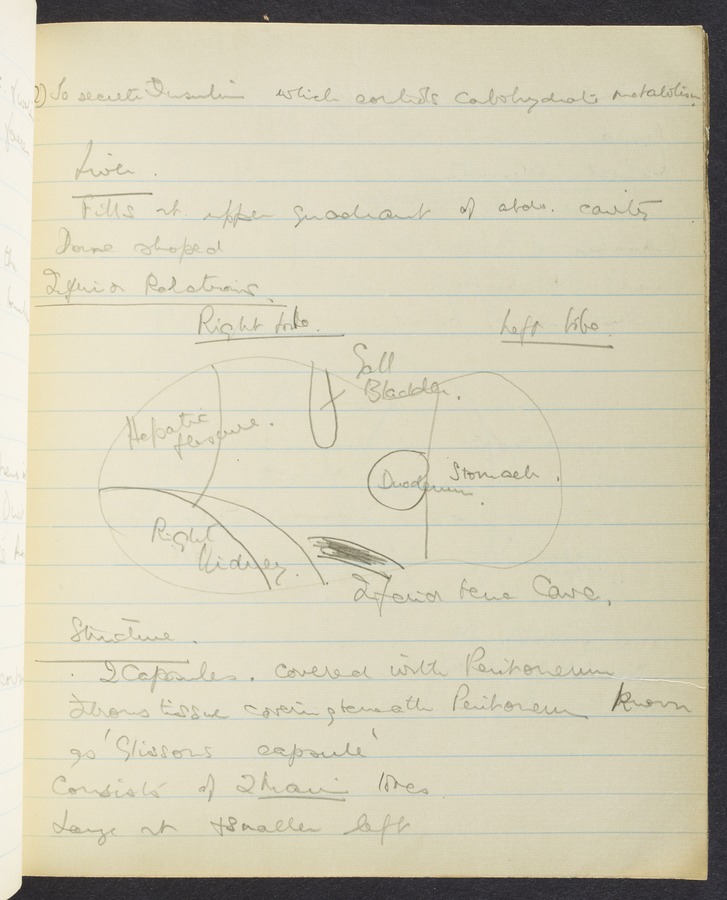 2) To secrete Insulin which controls carbohydrate metabolism
Liver.
Fills rt. upper quadrant of abdo. cavity
Dome shaped
Inferior Relations.
Right lobe. Left lobe.
Gall
Bladder.
Hepatic
flexure.
Duodenum.
Stomach.
Right
Kidney.
Inferior Vena Cava.
Structure.
2 Capsules. covered with Peritoneum
Fibrous tissue covering beneath Peritoneum known
as 'Glissons capsule'
Consists of 2 main lobes
Large rt + smaller left